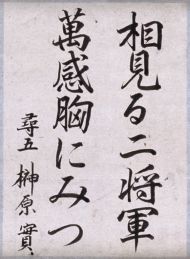 相見る二将軍
萬感胸にみつ
尋五 榊原實